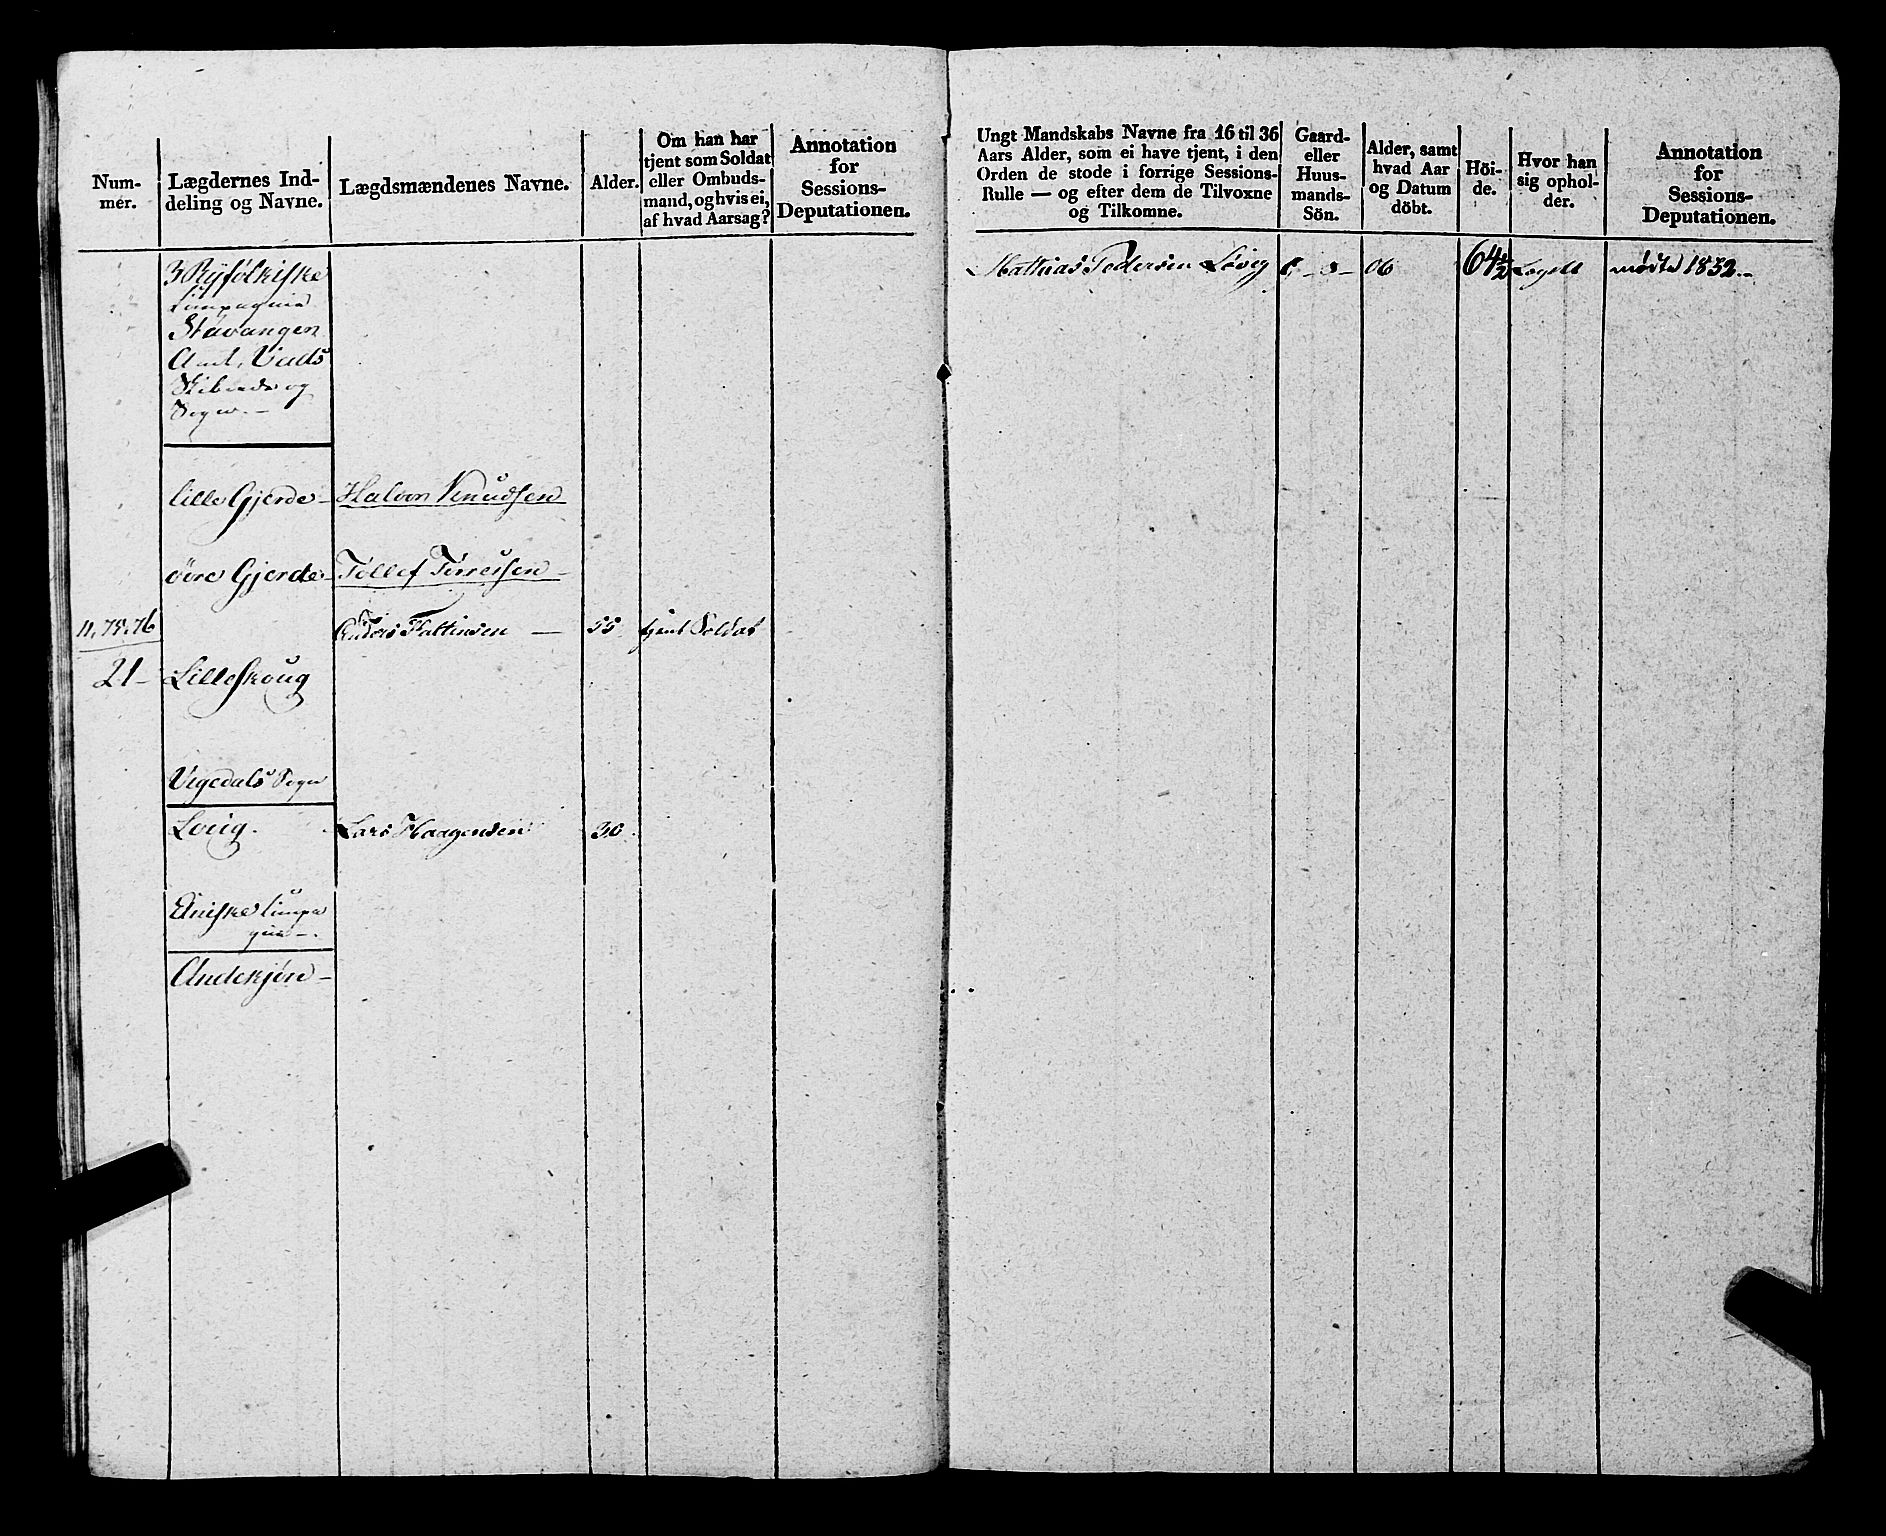 Num-
mer.
Lægdernes Ind-
deling og Navne.
Lægdsmændenes Navne.
Alder.
Om han har
tjent som Soldat
eller Ombuds-
mand, og hvis ei,
af hvad Aarsag?
Annotation
for
Sessions-
Deputationen.
3 Ryfølkiske
Compagnie
Stavanger
Amt, Vads
Skibrede og
Sogn. -
lille Gjerde - Halvor Knudsen
øvre Gjerde - Tollef Torressen -
11, 75, 76
Anders Fattinsen - 55 tjent Soldat
21 - Lilleskoug
Vigedals Sogn
Løvig. Lars Haagensen 30.
Ølniske Compa
gnie -.
Andekjøn -
Ungt Mandskabs Navne fra 16 til 36
Aars Alder, som ei have tjent, i den
Orden de stode i forrige Sessions-
Rulle — og efter dem de Tilvoxne
og Tilkomne.
Gaard-
eller
Huus-
mands-
Sön.
Alder, samt
hvad Aar
og Datum
döbt.
Höi-
de.
Hvor han
sig ophol-
der.
Annotation
for
Sessions-
Deputationen.
Mathias Pedersen Løvig G - S - 06 64½ Lægdt mødte 1832. -